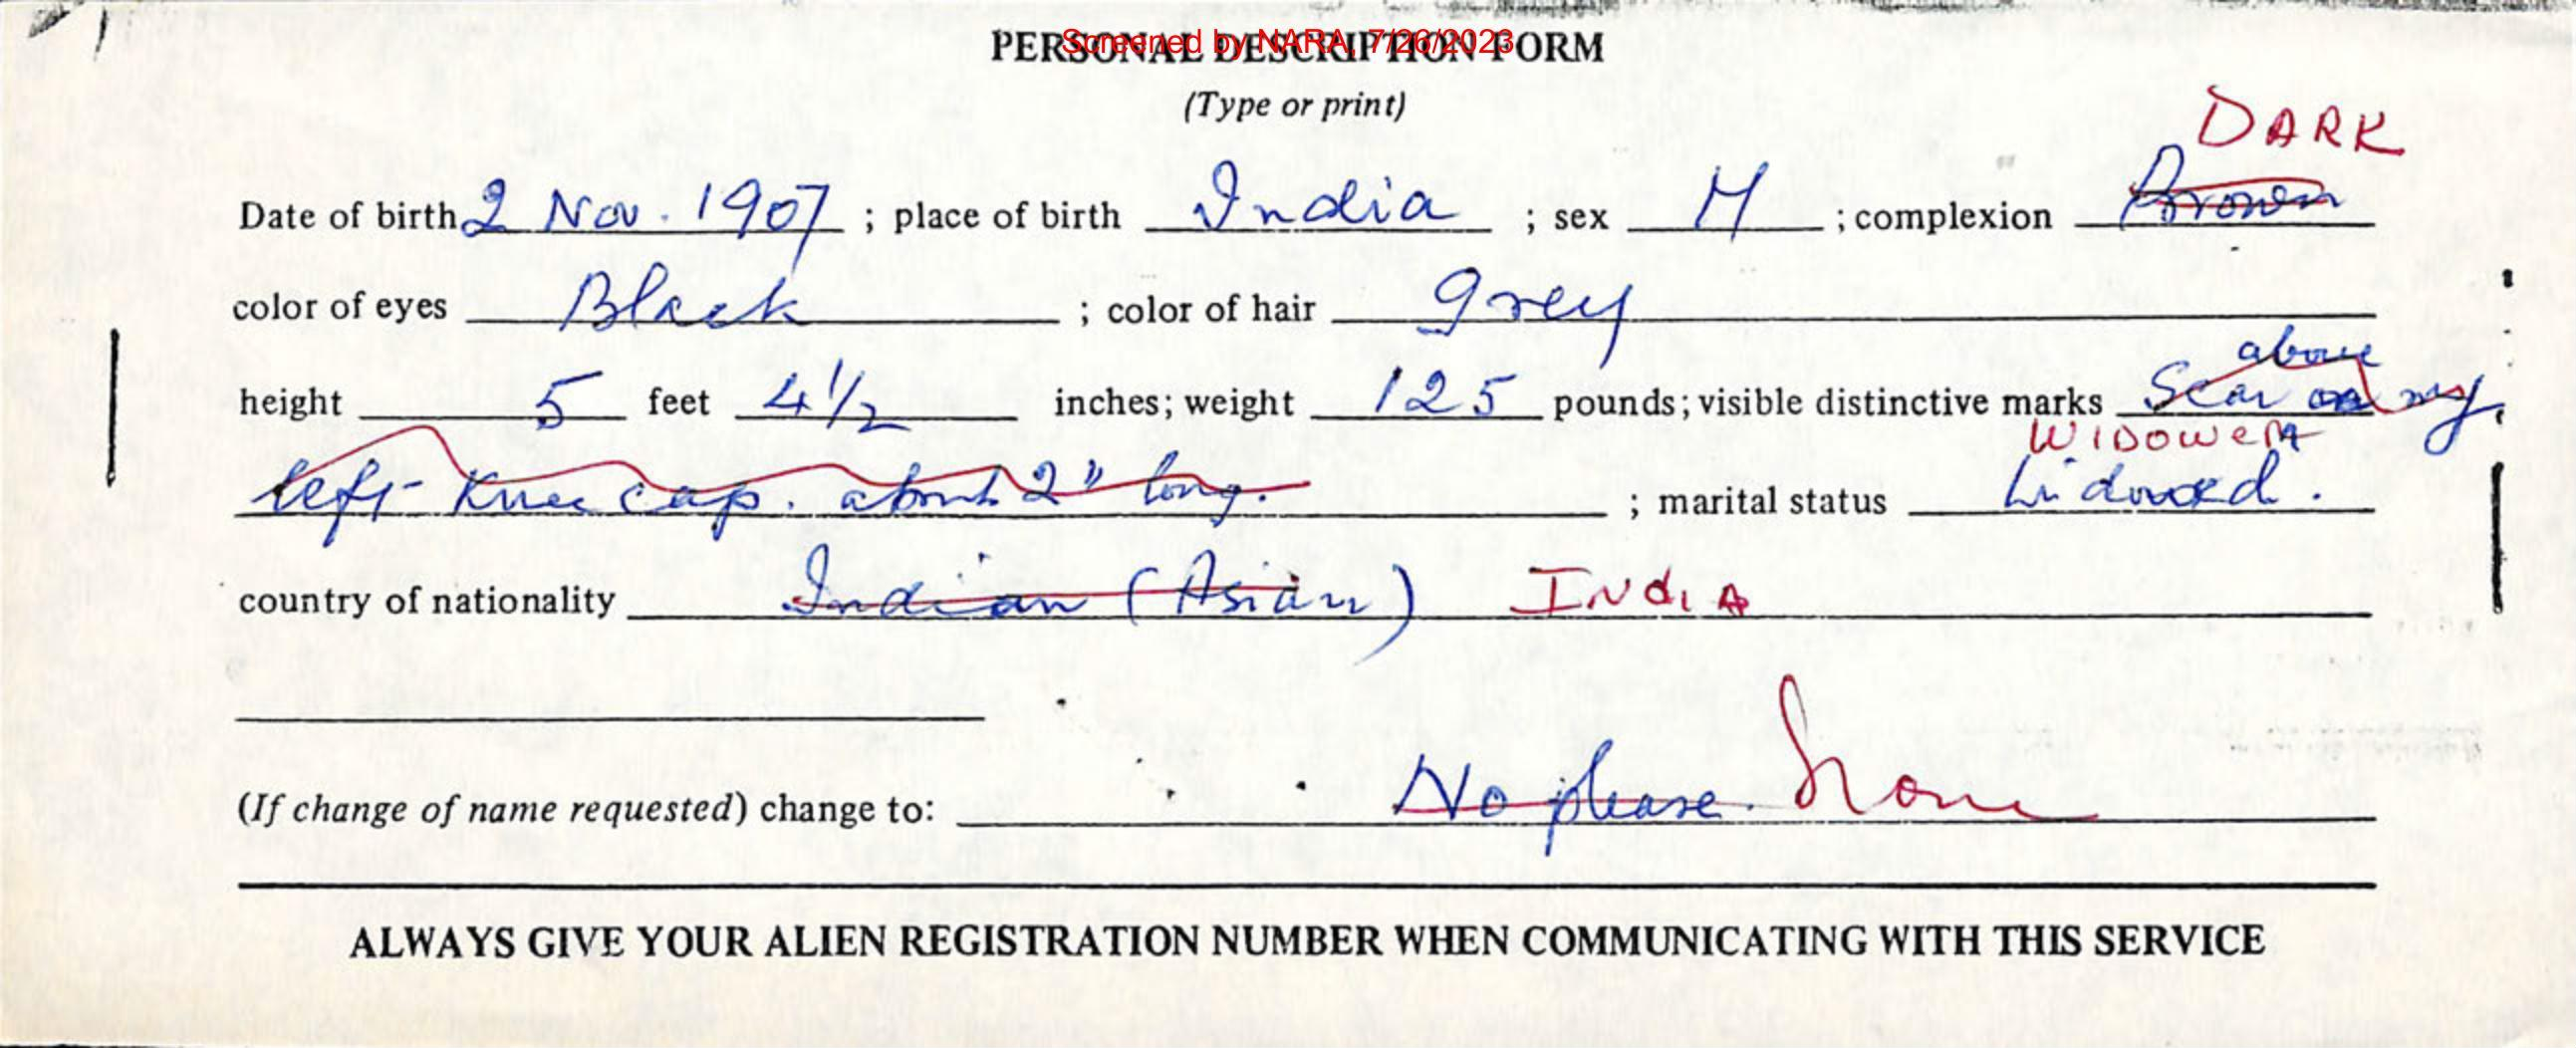 Screened by NARA, 7/26/2023
PERSONAL DESCRIPTION FORM
(Type or print)
DARK
Date of birth 2 Nov. 1907 ; place of birth India ; sex M ; complexion Brown
color of eyes Black ; color of hair Grey
above
height 5 feet 4 1/2 inches; weight 125 pounds; visible distinctive marks Scar on my
WIDOWER
left Knee cap. about 2" long. ; marital status Widowed.
country of nationality Indian (Asian) INDIA
(If change of name requested) change to: No please. None
ALWAYS GIVE YOUR ALIEN REGISTRATION NUMBER WHEN COMMUNICATING WITH THIS SERVICE